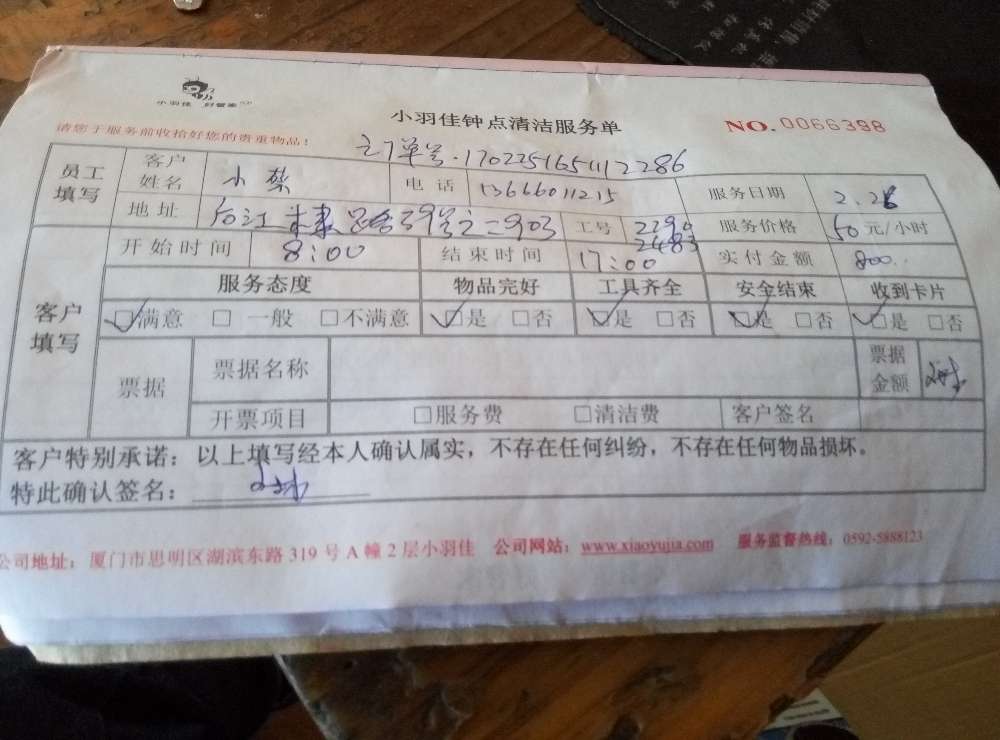 小羽佳 好管家
小羽佳钟点清洁服务单
NO. 0066398
请您于服务前收拾好您的贵重物品!
订单号·170225165412286
员工填写
客户姓名 小 电话 13666011215 服务日期 2.28
地址 后江 路 903 工号 2290 2483 服务价格 50元/小时
客户填写
开始时间 8:00 结束时间 17:00 实付金额 800
服务态度 物品完好 工具齐全 安全结束 收到卡片
☑满意 □一般 □不满意 ☑是 □否 ☑是 □否 ☑是 □否 ☑是 □否
票据 票据名称 票据金额
开票项目 □服务费 □清洁费 客户签名
客户特别承诺:以上填写经本人确认属实,不存在任何纠纷,不存在任何物品损坏。
特此确认签名:
公司地址:厦门市思明区湖滨东路 319 号 A 幢 2 层小羽佳 公司网站:www.xiaoyujia.com 服务监督热线:0592-5888123